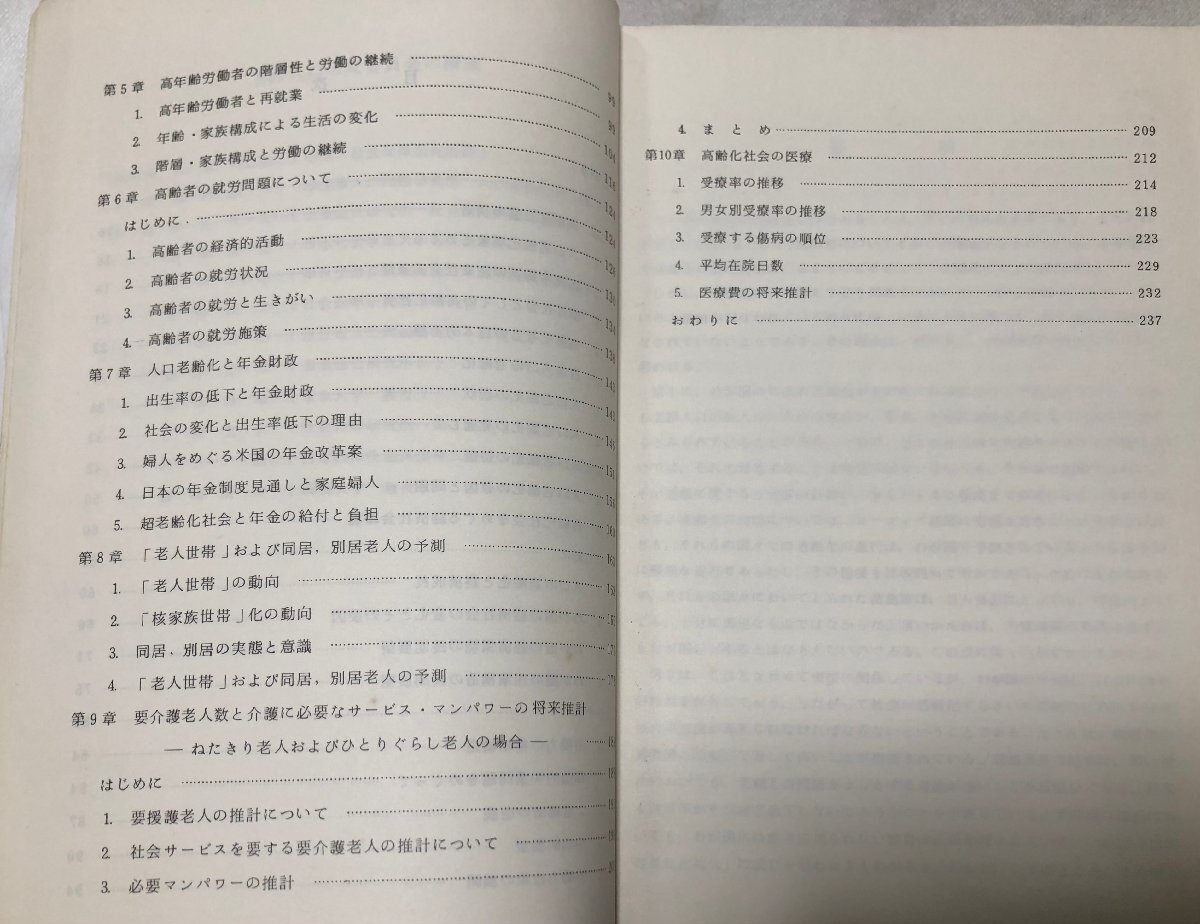 第5章 高年齢労働者の階層性と労働の継続 …… 90
1. 高年齢労働者と再就業 …… 90
2. 年齢・家族構成による生活の変化 …… 104
3. 階層・家族構成と労働の継続 …… 118
第6章 高齢者の就労問題について …… 124
はじめに …… 124
1. 高齢者の経済的活動 …… 126
2. 高齢者の就労状況 …… 130
3. 高齢者の就労と生きがい …… 134
4. 高齢者の就労施策 …… 138
第7章 人口老齢化と年金財政 …… 143
1. 出生率の低下と年金財政 …… 143
2. 社会の変化と出生率低下の理由 …… 146
3. 婦人をめぐる米国の年金改革案 …… 151
4. 日本の年金制度見通しと家庭婦人 …… 156
5. 超老齢化社会と年金の給付と負担 …… 160
第8章 「老人世帯」および同居，別居老人の予測 ……
1. 「老人世帯」の動向 ……
2. 「核家族世帯」化の動向 ……
3. 同居，別居の実態と意識 ……
4. 「老人世帯」および同居，別居老人の予測 ……
第9章 要介護老人数と介護に必要なサービス・マンパワーの将来推計
― ねたきり老人およびひとりぐらし老人の場合 ― ……
はじめに ……
1. 要援護老人の推計について ……
2. 社会サービスを要する要介護老人の推計について ……
3. 必要マンパワーの推計 ……
4. まとめ …… 209
第10章 高齢化社会の医療 …… 212
1. 受療率の推移 …… 214
2. 男女別受療率の推移 …… 218
3. 受療する傷病の順位 …… 223
4. 平均在院日数 …… 229
5. 医療費の将来推計 …… 232
おわりに …… 237